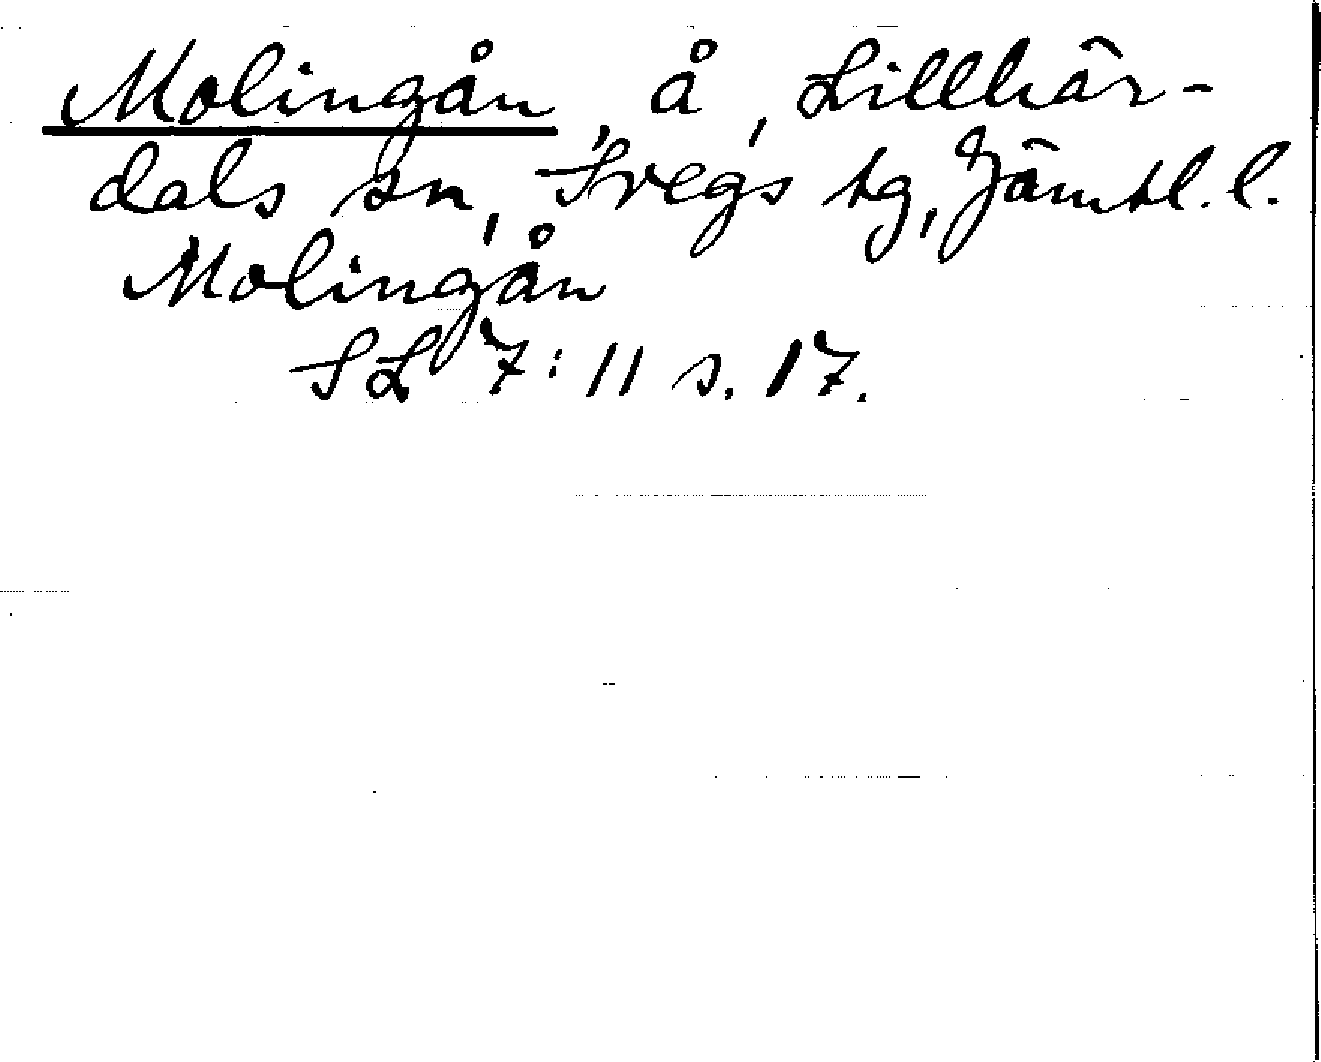 Molingån, å, Lillhär-
dals sn, Svegs tg, Jämtl. l.
Molingån
SL 7:11 s. 17.